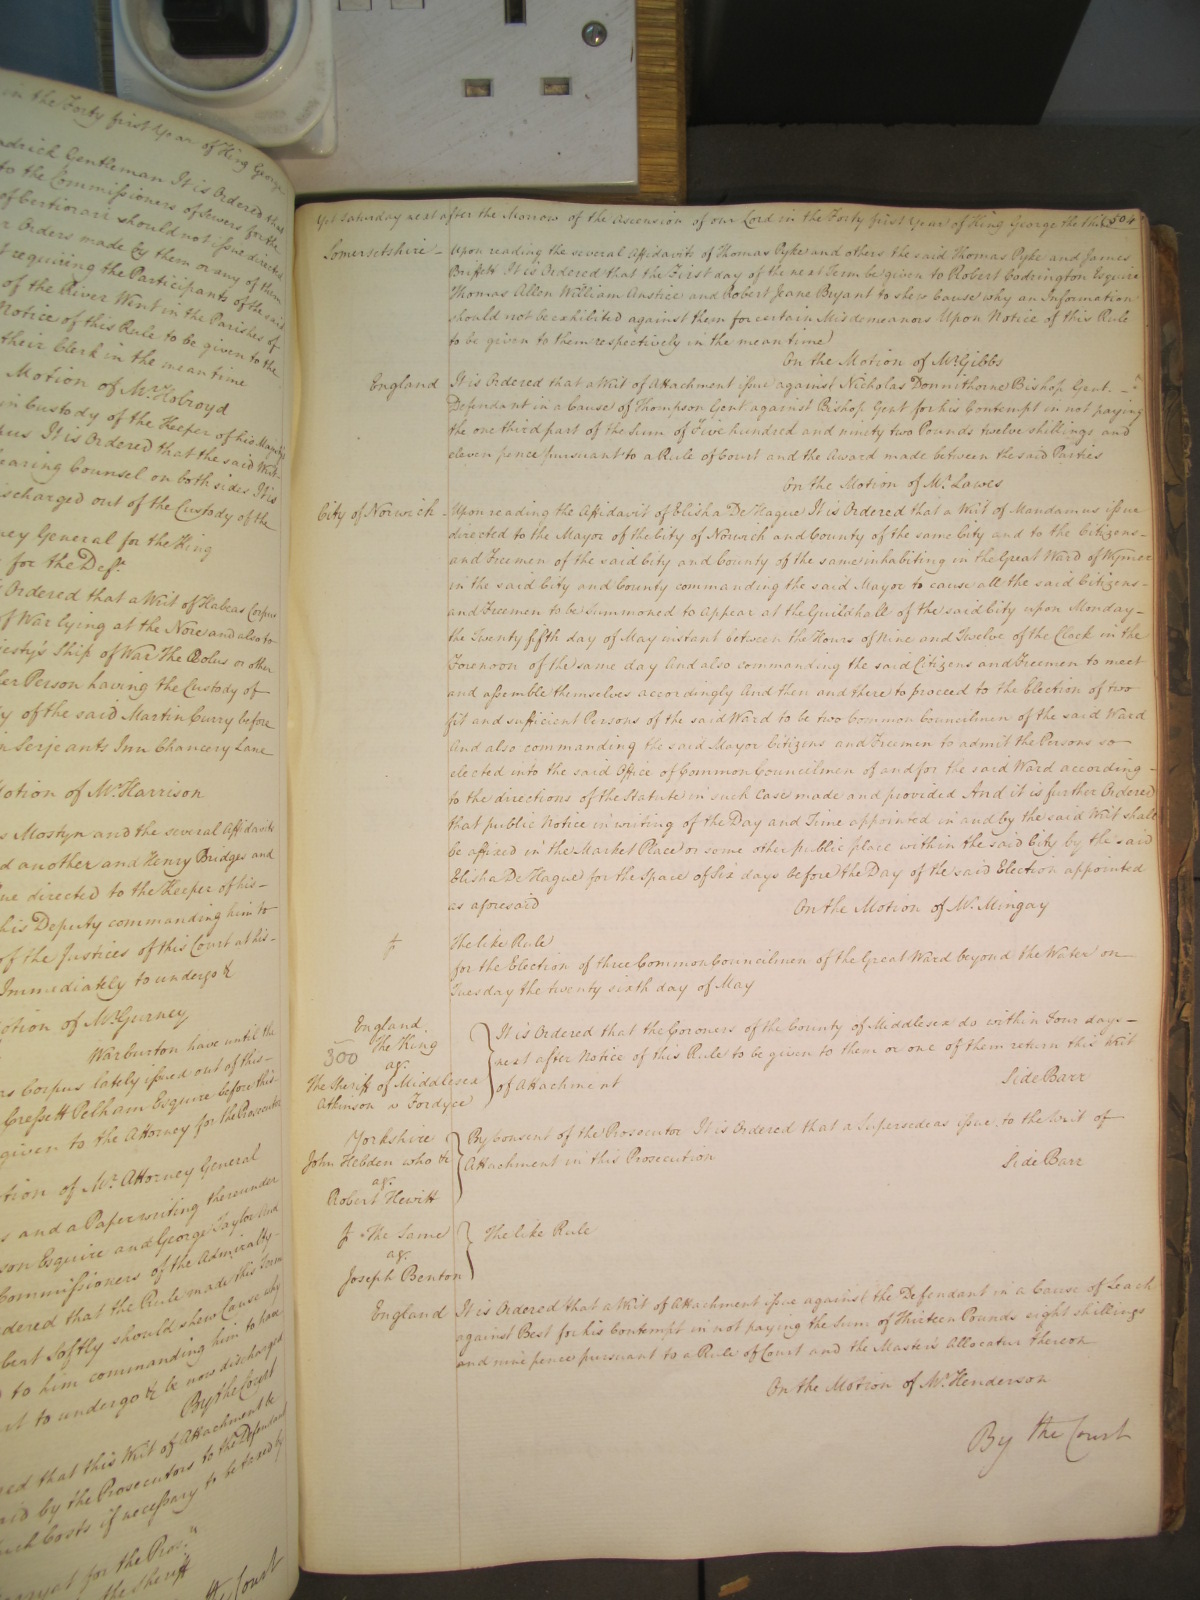 in the Forty first Year of King George
Gentleman It is Ordered that
to the Commissioners of Sewers for the
of Certiorari should not issue directed
Orders made by them or any of them
requiring the Participants of the said
of the River Went in the Parishes of
Notice of this Rule to be given to the
their Clerk in the mean time
Motion of Mr. Holroyd
in Custody of the Keeper of his
It is Ordered that the said Writ
hearing Counsel on both sides It is
discharged out of the Custody of the
General for the King
for the Deft.
Ordered that a Writ of Habeas Corpus
of War lying at the Nore and also to
Ship of War The Eolus or other
Person having the Custody of
of the said Martin Curry before
in Serjeants Inn Chancery Lane
Motion of Mr. Harrison
Mostyn and the several Affidavits
another and Henry Bridges and
directed to the Keeper of his
his Deputy commanding him to
of the Justices of this Court at his
Immediately to undergo &
Motion of Mr. Gurney
Warburton have until the
Corpus lately issued out of this
Cressett Pelham Esquire before this
given to the Attorney for the Prosecutor
Motion of Mr. Attorney General
and a Paper writing thereunder
Esquire and George Taylor and
Commissioners of the Admiralty
Ordered that the Rule made this Term
Softly should shew Cause why
to him commanding him to have
to undergo & be now discharged
By the Court
that this Writ of Attachment be
by the Prosecutors to the Defendant
such Costs if necessary to be taxed by
for the Pros.
the Sheriff
Court
Yet Saturday next after the Morrow of the Ascension of our Lord in the Forty first Year of King George the third 504
Somersetshire - Upon reading the several Affidavits of Thomas Pyke and others the said Thomas Pyke and James
Buffett It is Ordered that the First day of the next Term be given to Robert Codrington Esquire
Thomas Allen William Anstice and Robert Jeane Bryant to shew Cause why an Information
should not be exhibited against them for certain Misdemeanors Upon Notice of this Rule
to be given to them respectively in the mean time
On the Motion of Mr. Gibbs
England It is Ordered that a Writ of Attachment issue against Nicholas Donnithorne Bishop Gent.
Defendant in a Cause of Thompson Gent against Bishop Gent for his Contempt in not paying
the one third part of the Sum of Five hundred and ninety two Pounds twelve shillings and
eleven pence pursuant to a Rule of Court and the Award made between the said Parties
On the Motion of Mr. Lawes
City of Norwich - Upon reading the Affidavit of Elisha De Hague It is Ordered that a Writ of Mandamus issue
directed to the Mayor of the City of Norwich and County of the same City and to the Citizens -
and Freemen of the said City and County of the same inhabiting in the Great Ward of Wymer
in the said City and County commanding the said Mayor to cause all the said Citizens -
and Freemen to be Summoned to appear at the Guildhall of the said City upon Monday -
the Twenty fifth day of May instant between the Hours of Nine and Twelve of the Clock in the
Forenoon of the same day And also commanding the said Citizens and Freemen to meet
and assemble themselves accordingly And then and there to proceed to the Election of two
fit and sufficient Persons of the said Ward to be two Common Councilmen of the said Ward
And also commanding the said Mayor Citizens and Freemen to admit the Persons so
elected into the said Office of Common Councilmen of and for the said Ward according -
to the directions of the Statute in such Case made and provided And it is further Ordered
that public Notice in writing of the Day and Time appointed in and by the said Writ shall
be affixed in the Market Place or some other public place within the said City by the said
Elisha De Hague for the Space of Six days before the Day of the said Election appointed
as aforesaid On the Motion of Mr. Mingay
The like Rule
for the Election of three Common Councilmen of the Great Ward beyond the Water on
Tuesday the twenty sixth day of May
England
300 The King
agt.
The Sheriff of Middlesex
Atkinson v Fordyce
It is Ordered that the Coroners of the County of Middlesex do within Four days -
next after Notice of this Rule to be given to them or one of them return this Writ
of Attachment Side Barr
Yorkshire
John Hebden who &c
agt.
Robert Hewitt
By Consent of the Prosecutor It is Ordered that a Supersedeas issue to the Writ of
Attachment in this Prosecution Side Barr
The Same
agt.
Joseph Benton
The like Rule
England It is Ordered that a Writ of Attachment issue against the Defendant in a Cause of Leach
against Best for his Contempt in not paying the Sum of Thirteen Pounds eight shillings
and nine pence pursuant to a Rule of Court and the Master's Allocatur thereon
On the Motion of Mr. Henderson
By the Court